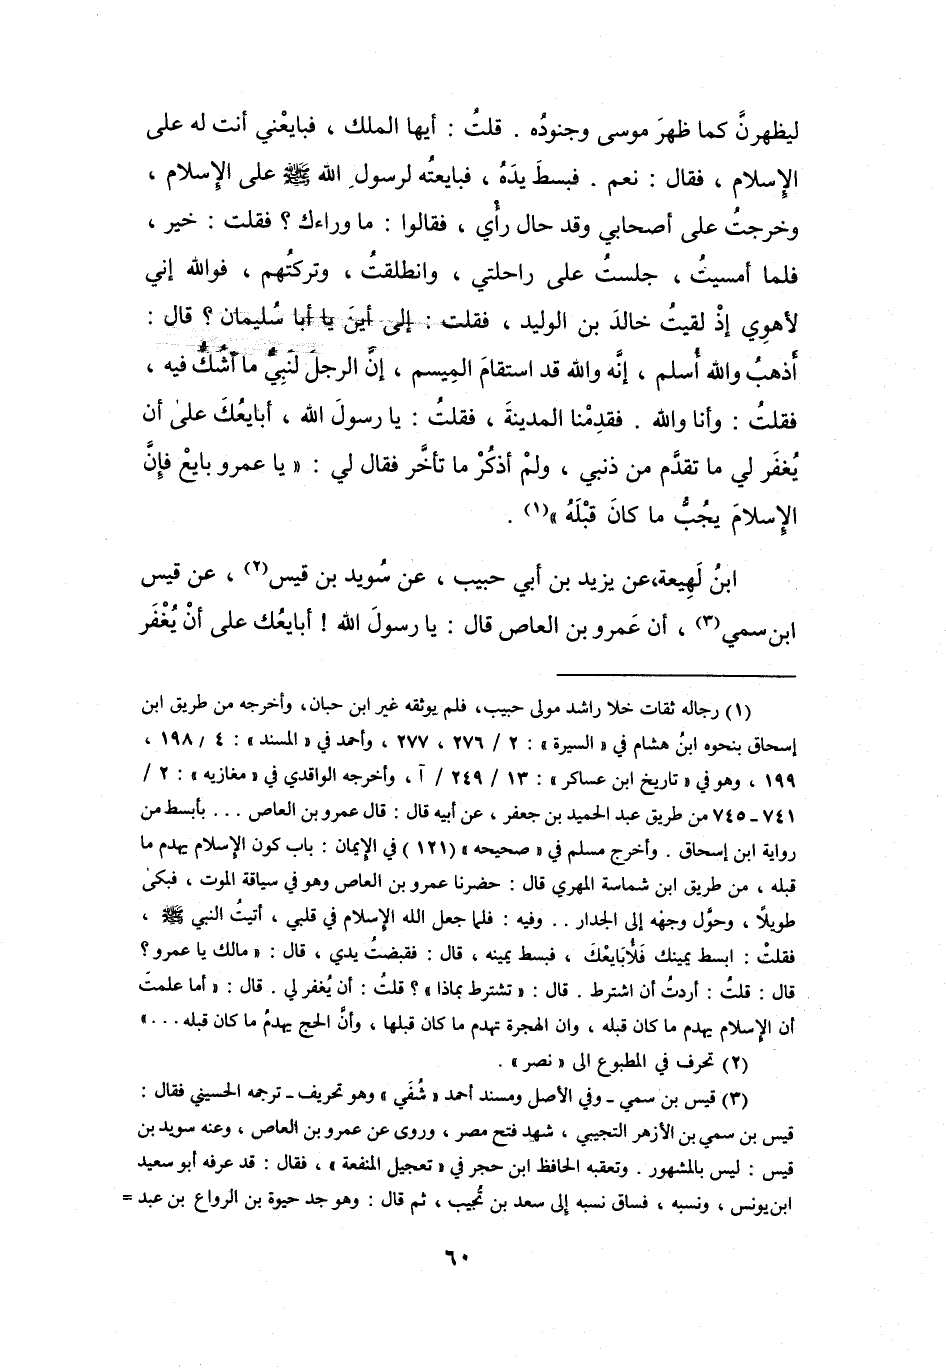 ليظهرنَّ كما ظهرَ موسى وجنودُه . قلتُ : أيها الملك ، فبايعْني أنت له على
الإِسلام ، فقال : نعم . فبسطَ يدَهُ ، فبايعتُه لرسولِ الله ﷺ على الإِسلام ،
وخرجتُ على أصحابي وقد حال رأْي ، فقالوا : ما وراءك ؟ فقلت : خير ،
فلما أمسيتُ ، جلستُ على راحلتي ، وانطلقتُ ، وتركتُهم ، فوالله إني
لأهوِي إذْ لقيتُ خالدَ بن الوليد ، فقلت : إلى أينَ يا أبا سُليمان ؟ قال :
أَذهبُ والله أُسلم ، إنَّه والله قد استقامَ المِيسم ، إنَّ الرجلَ لَنَبِيٌّ ما أَشُكُّ فيه ،
فقلتُ : وأنا والله . فقدِمْنا المدينةَ ، فقلتُ : يا رسولَ الله ، أبايعُكَ على أن
يُغفَر لي ما تقدَّم من ذنبي ، ولمْ أذكُرْ ما تأخَّر فقال لي : « يا عمرو بايعْ فإِنَّ
الإِسلامَ يجُبُّ ما كانَ قبْلَهُ »(١) .
ابنُ لَهِيعة،عن يزيد بن أبي حبيب ، عن سُويد بن قيس(٢) ، عن قيس
ابن سمي(٣) ، أن عَمرو بن العاص قال : يا رسولَ الله ! أبايعُك على أنْ يُغْفَر
(١) رجاله ثقات خلا راشد مولى حبيب، فلم يوثقه غير ابن حبان، وأخرجه من طريق ابن
إسحاق بنحوه ابنُ هشام في « السيرة » : ٢ / ٢٧٦ ، ٢٧٧ ، وأحمد في « المسند » : ٤ / ١٩٨ ،
١٩٩ ، وهو في « تاريخ ابن عساكر » : ١٣ / ٢٤٩ / آ ، وأخرجه الواقدي في « مغازيه » : ٢ /
٧٤١ ـ ٧٤٥ من طريق عبد الحميد بن جعفر ، عن أبيه قال : قال عمرو بن العاص . . . بأبسط من
رواية ابن إسحاق . وأخرج مسلم في « صحيحه » (١٢١ ) في الإيمان : باب كون الإسلام يهدم ما
قبله ، من طريق ابن شماسة المهري قال : حضرنا عمرو بن العاص وهو في سياقة الموت ، فبكىٰ
طويلاً ، وحوَّل وجهْه إلى الجدار . . وفيه : فلما جعل الله الإسلام في قلبي ، أتيتُ النبي ﷺ ،
فقلتْ : ابسط يمينك فَلْأُبَايعْكَ ، فبسط يمينه ، قال : فقبضتُ يدي ، قال : « مالك يا عمرو ؟
قال : قلتُ : أردتُ أن اشترط . قال : « تشترط بماذا » ؟ قلتُ : أن يُغفر لي . قال : « أما علمتَ
أن الإِسلام يهدم ما كان قبله ، وان الهجرة تهدم ما كان قبلها ، وأنَّ الحج يهدمُ ما كان قبله . . . »
(٢) تحرف في المطبوع الى « نصر » .
(٣) قيس بن سمي ـ وفي الأصل ومسند أحمد « شُفَي » وهو تحريف ـ ترجمه الحسيني فقال :
قيس بن سمي بن الأزهر التجيبي ، شهد فتح مصر ، وروى عن عمرو بن العاص ، وعنه سويد بن
قيس : ليس بالمشهور . وتعقبه الحافظ ابن حجر في « تعجيل المنفعة » ، فقال : قد عرفه أبو سعيد
ابن يونس ، ونسبه ، فساق نسبه إلى سعد بن تُجيب ، ثم قال : وهو جد حيوة بن الرواع بن عبد =
٦٠